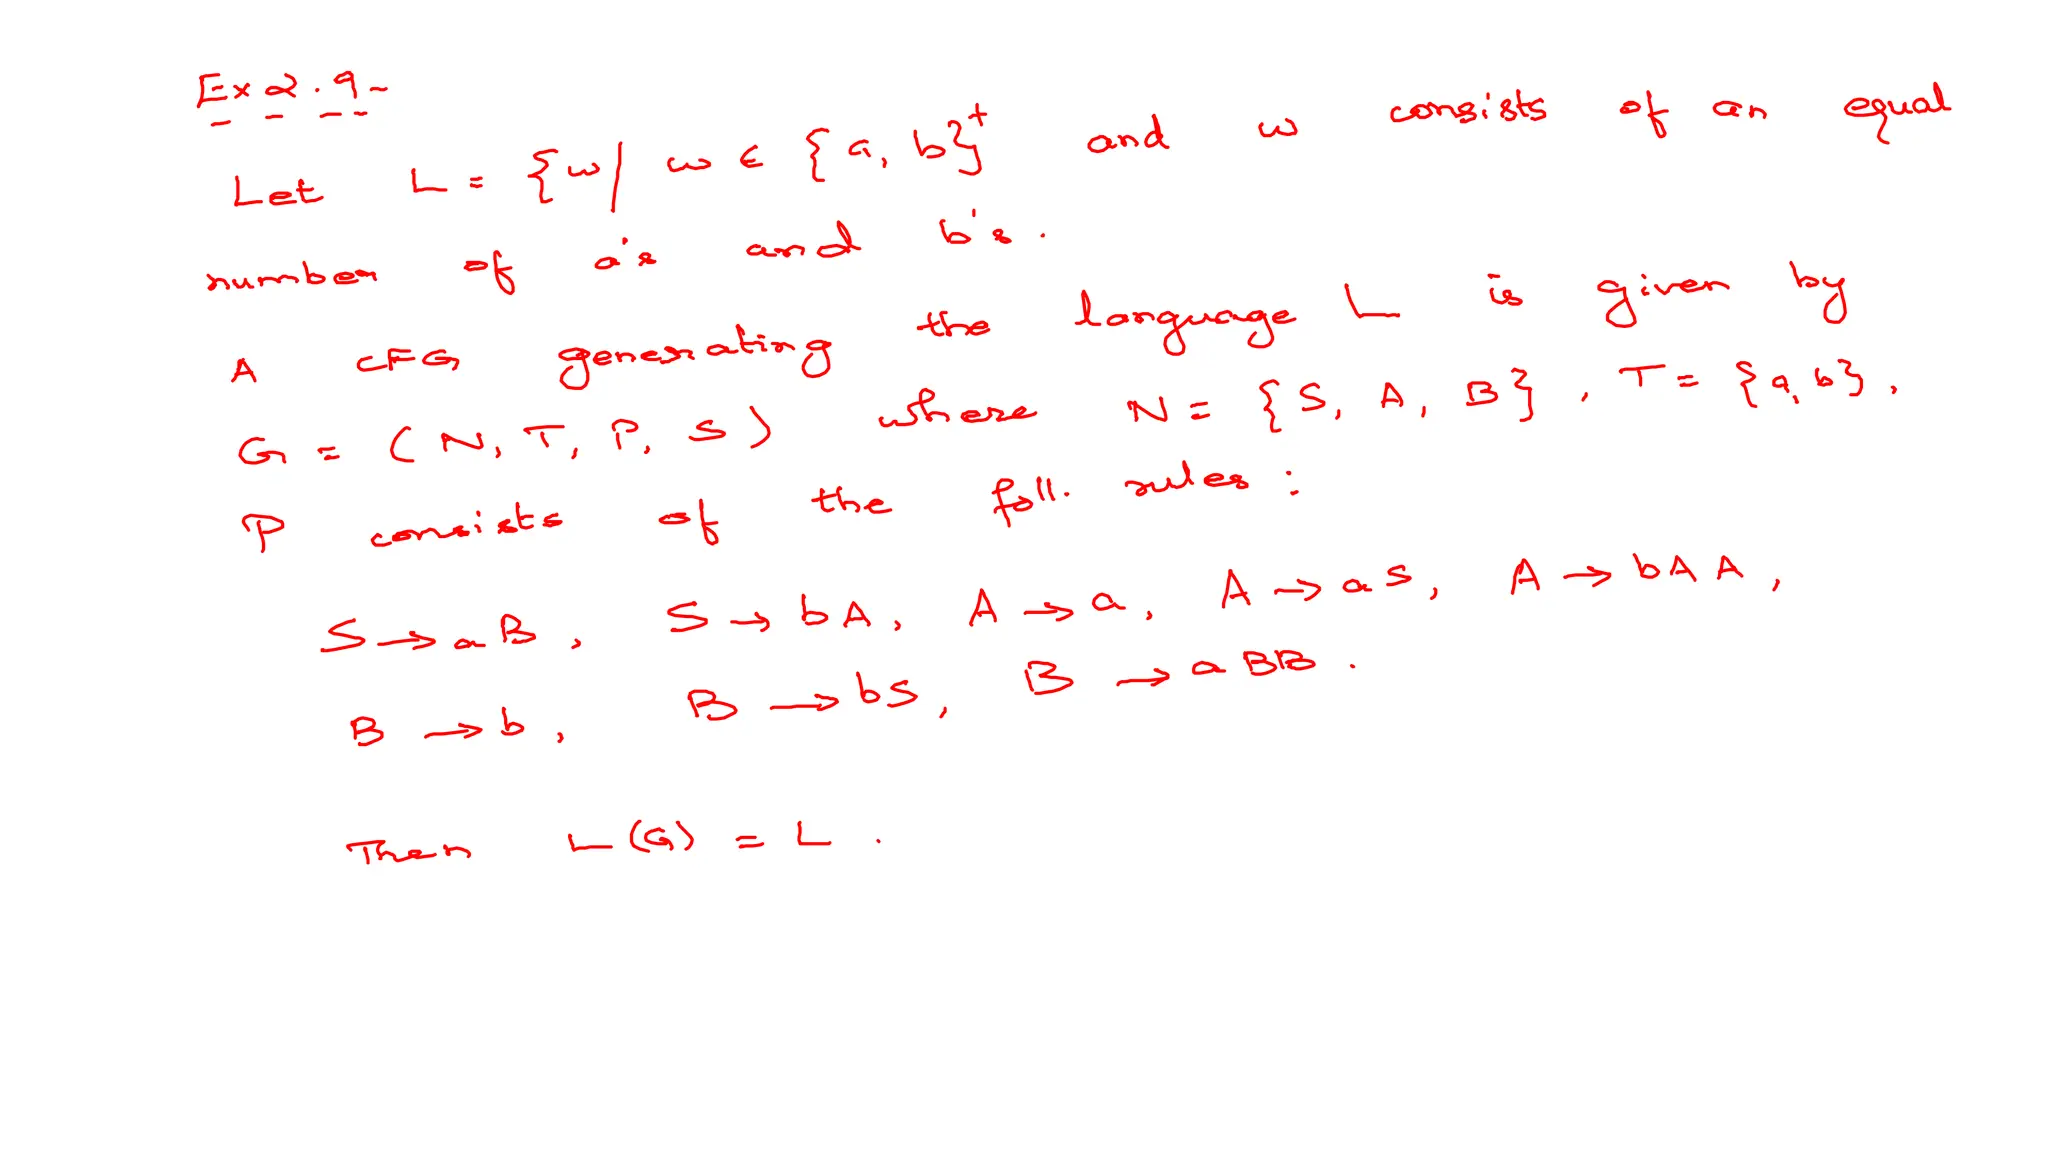 Ex 2.9-
Let L = {w/ w ∈ {a, b}⁺ and w consists of an equal
number of a's and b's.
A CFG generating the language L is given by
G = (N, T, P, S) where N = {S, A, B}, T = {a, b},
P consists of the foll. rules:
S → aB, S → bA, A → a, A → aS, A → bAA,
B → b, B → bS, B → aBB.
Then L(G) = L.